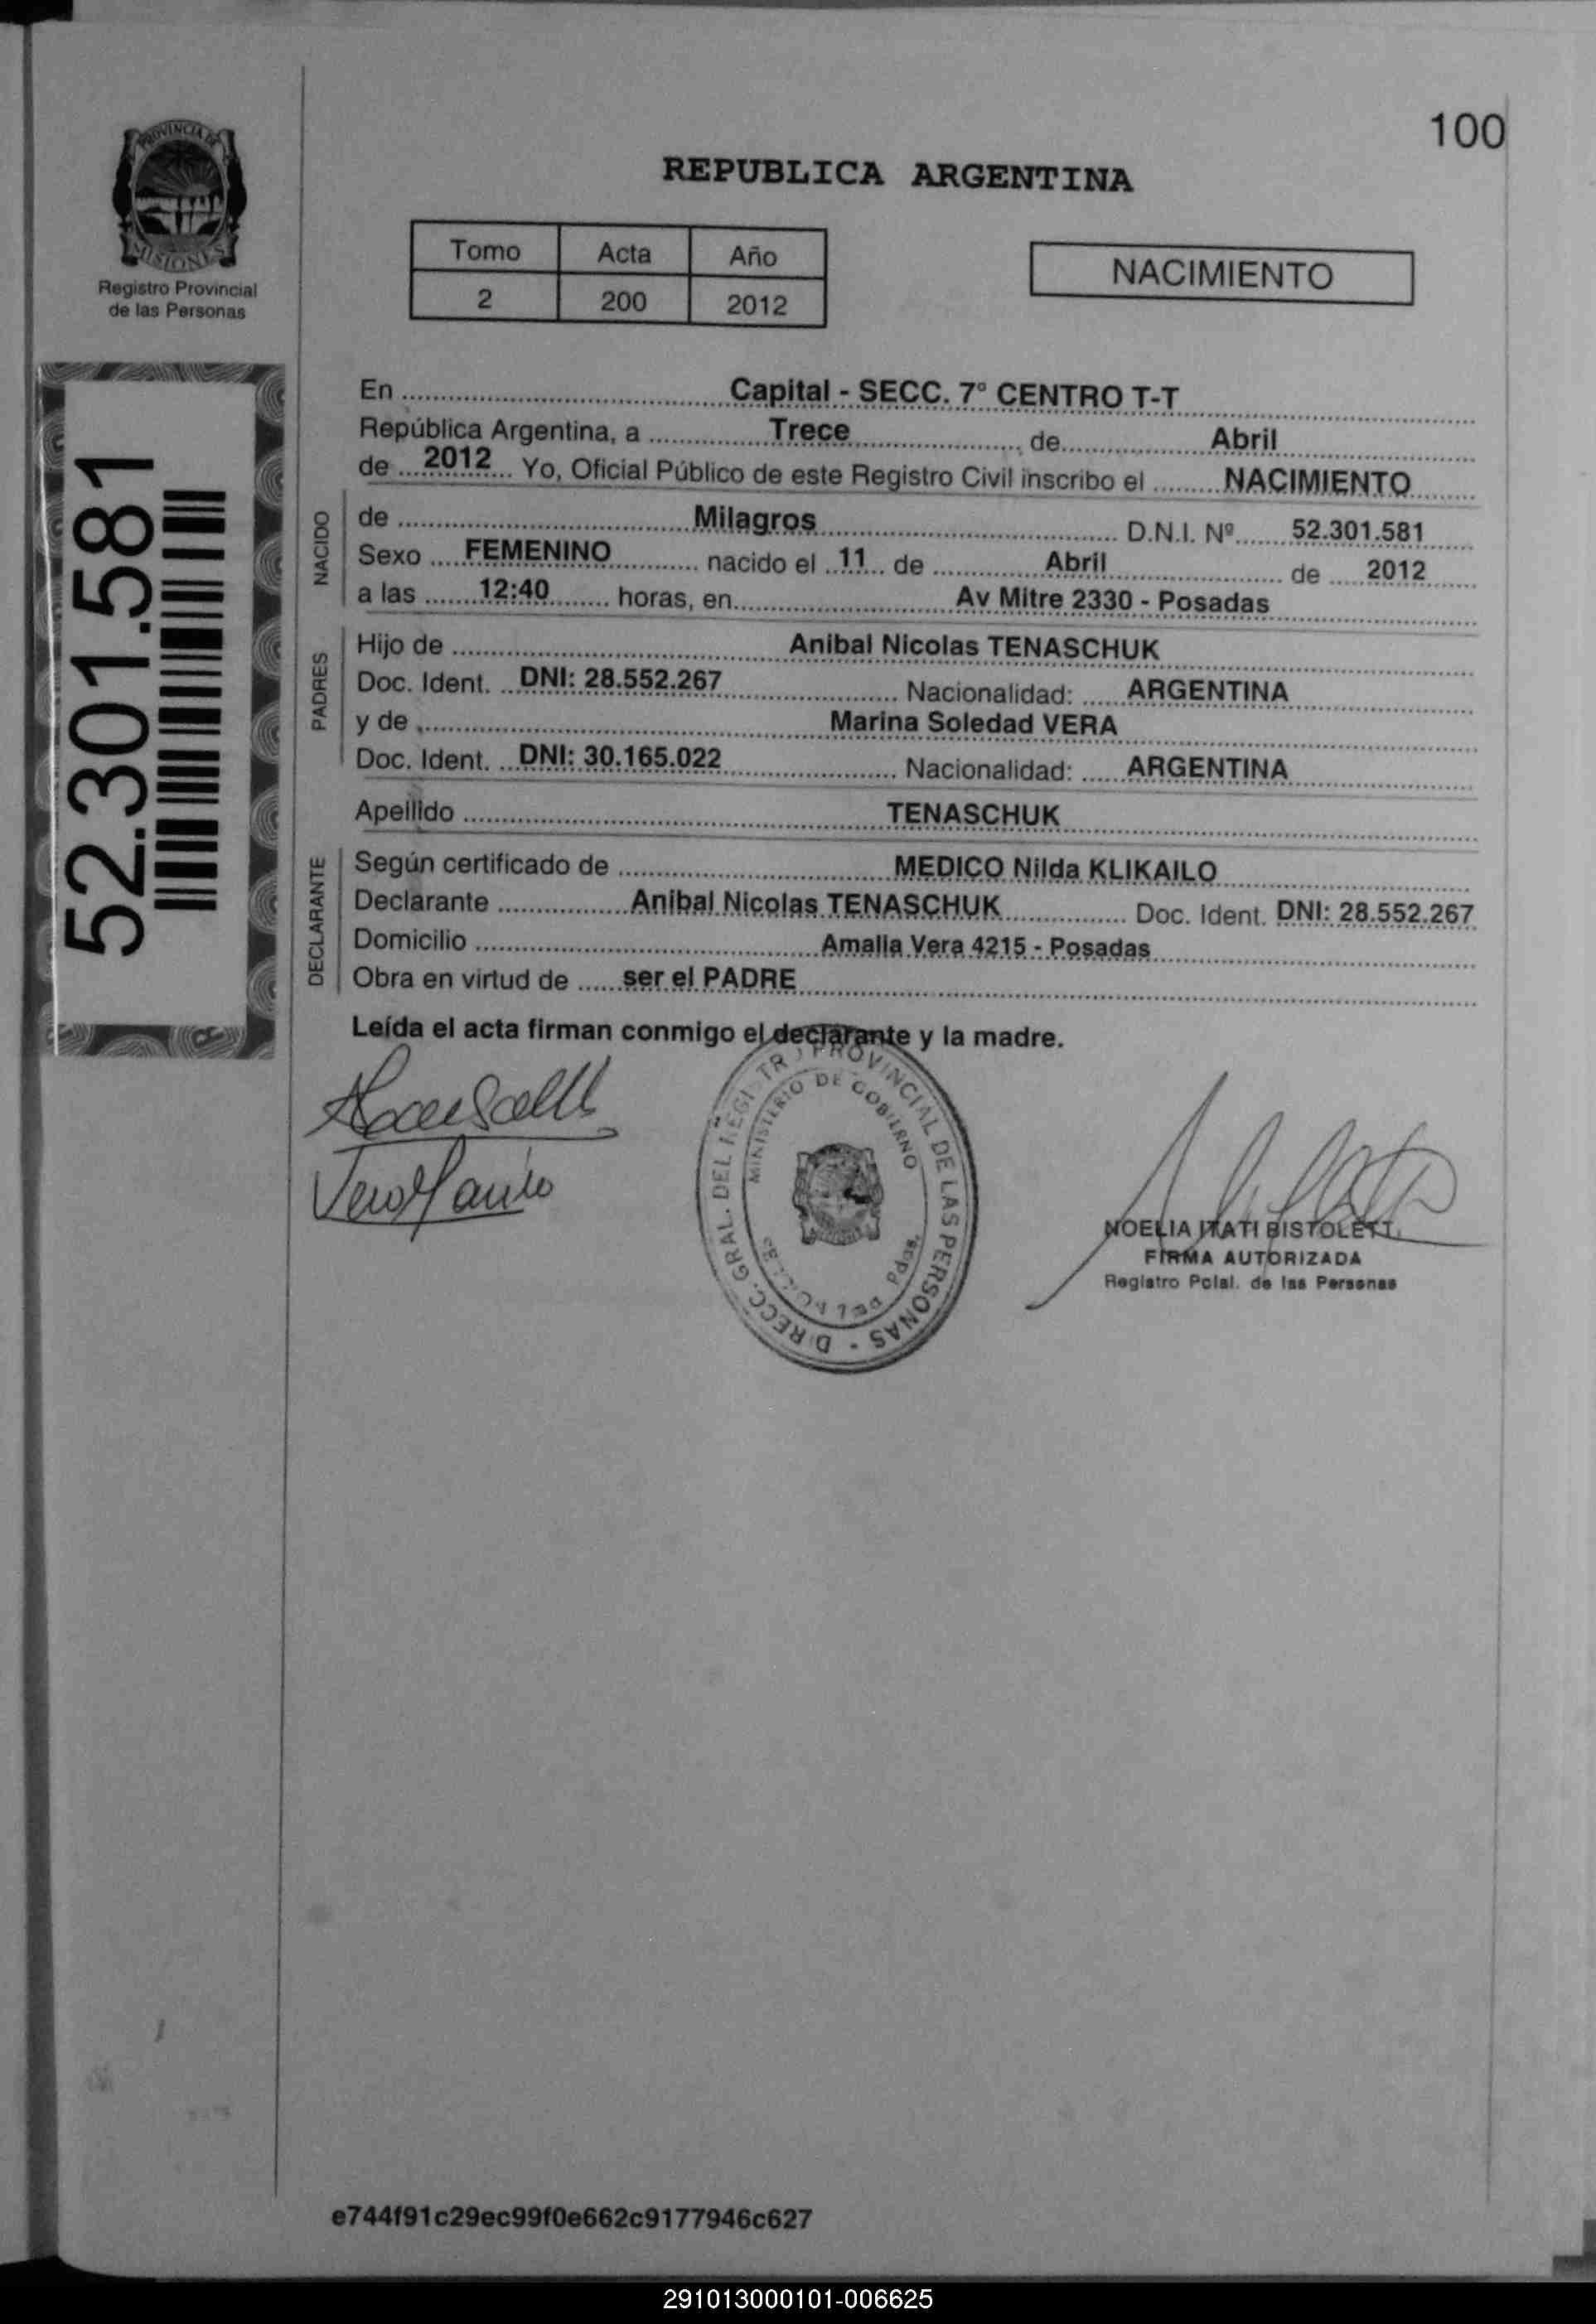 100
PROVINCIA DE
MISIONES
Registro Provincial
de las Personas
REPUBLICA ARGENTINA
Tomo Acta Año
2 200 2012
NACIMIENTO
52.301.581
En Capital - SECC. 7° CENTRO T-T
República Argentina, a Trece, de Abril
de 2012 Yo, Oficial Público de este Registro Civil inscribo el NACIMIENTO
NACIDO
de Milagros D.N.I. Nº 52.301.581
Sexo FEMENINO nacido el 11 de Abril de 2012
a las 12:40 horas, en Av Mitre 2330 - Posadas
PADRES
Hijo de Anibal Nicolas TENASCHUK
Doc. Ident. DNI: 28.552.267 Nacionalidad: ARGENTINA
y de Marina Soledad VERA
Doc. Ident. DNI: 30.165.022 Nacionalidad: ARGENTINA
Apellido TENASCHUK
DECLARANTE
Según certificado de MEDICO Nilda KLIKAILO
Declarante Anibal Nicolas TENASCHUK Doc. Ident. DNI: 28.552.267
Domicilio Amalia Vera 4215 - Posadas
Obra en virtud de ser el PADRE
Leída el acta firman conmigo el declarante y la madre.
DIRECC. GRAL. DEL REGISTRO PROVINCIAL DE LAS PERSONAS -
MINISTERIO DE GOBIERNO
Pdas.
NOELIA ITATI BISTOLETTI
FIRMA AUTORIZADA
Registro Pcial. de las Personas
e744f91c29ec99f0e662c9177946c627
291013000101-006625